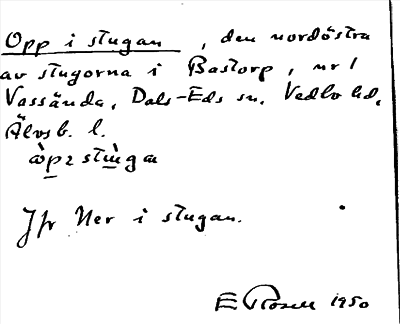 Opp i stugan, den nordöstra
av stugorna i Bastorp, nr 1
Vassända, Dals-Eds sn, Vedbo hd,
Älvsb. l.
Jfr Ner i stugan.
E Rosell 1950